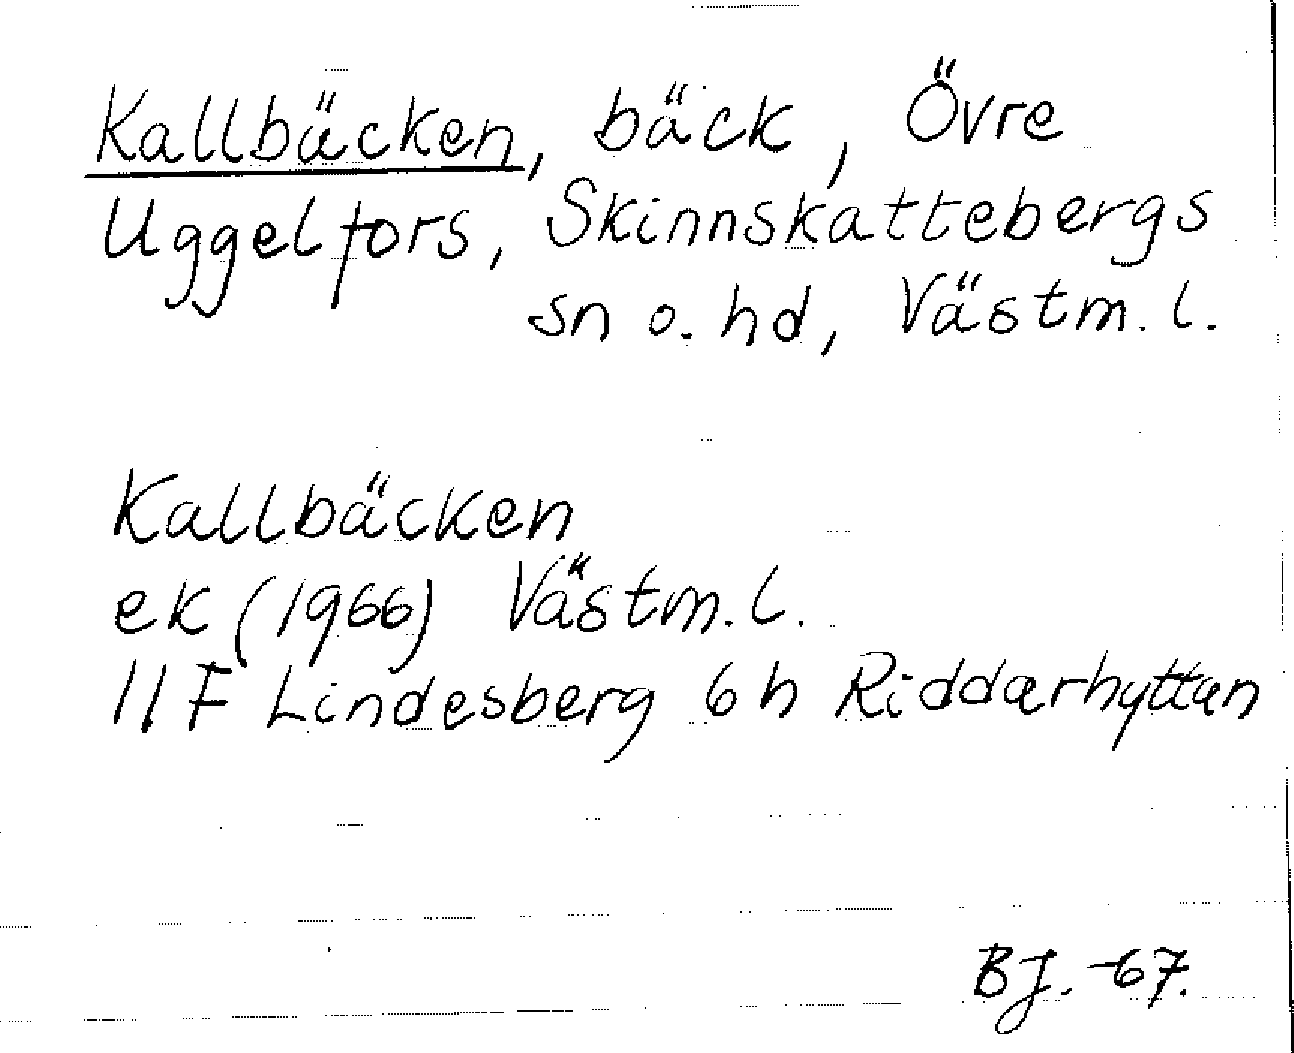 Kallbäcken, bäck, Övre
Uggelfors, Skinnskattebergs
sn o. hd, Västm. l.
Kallbäcken
ek (1966) Västm. l.
11F Lindesberg 6h Riddarhyttan
BJ. -67.